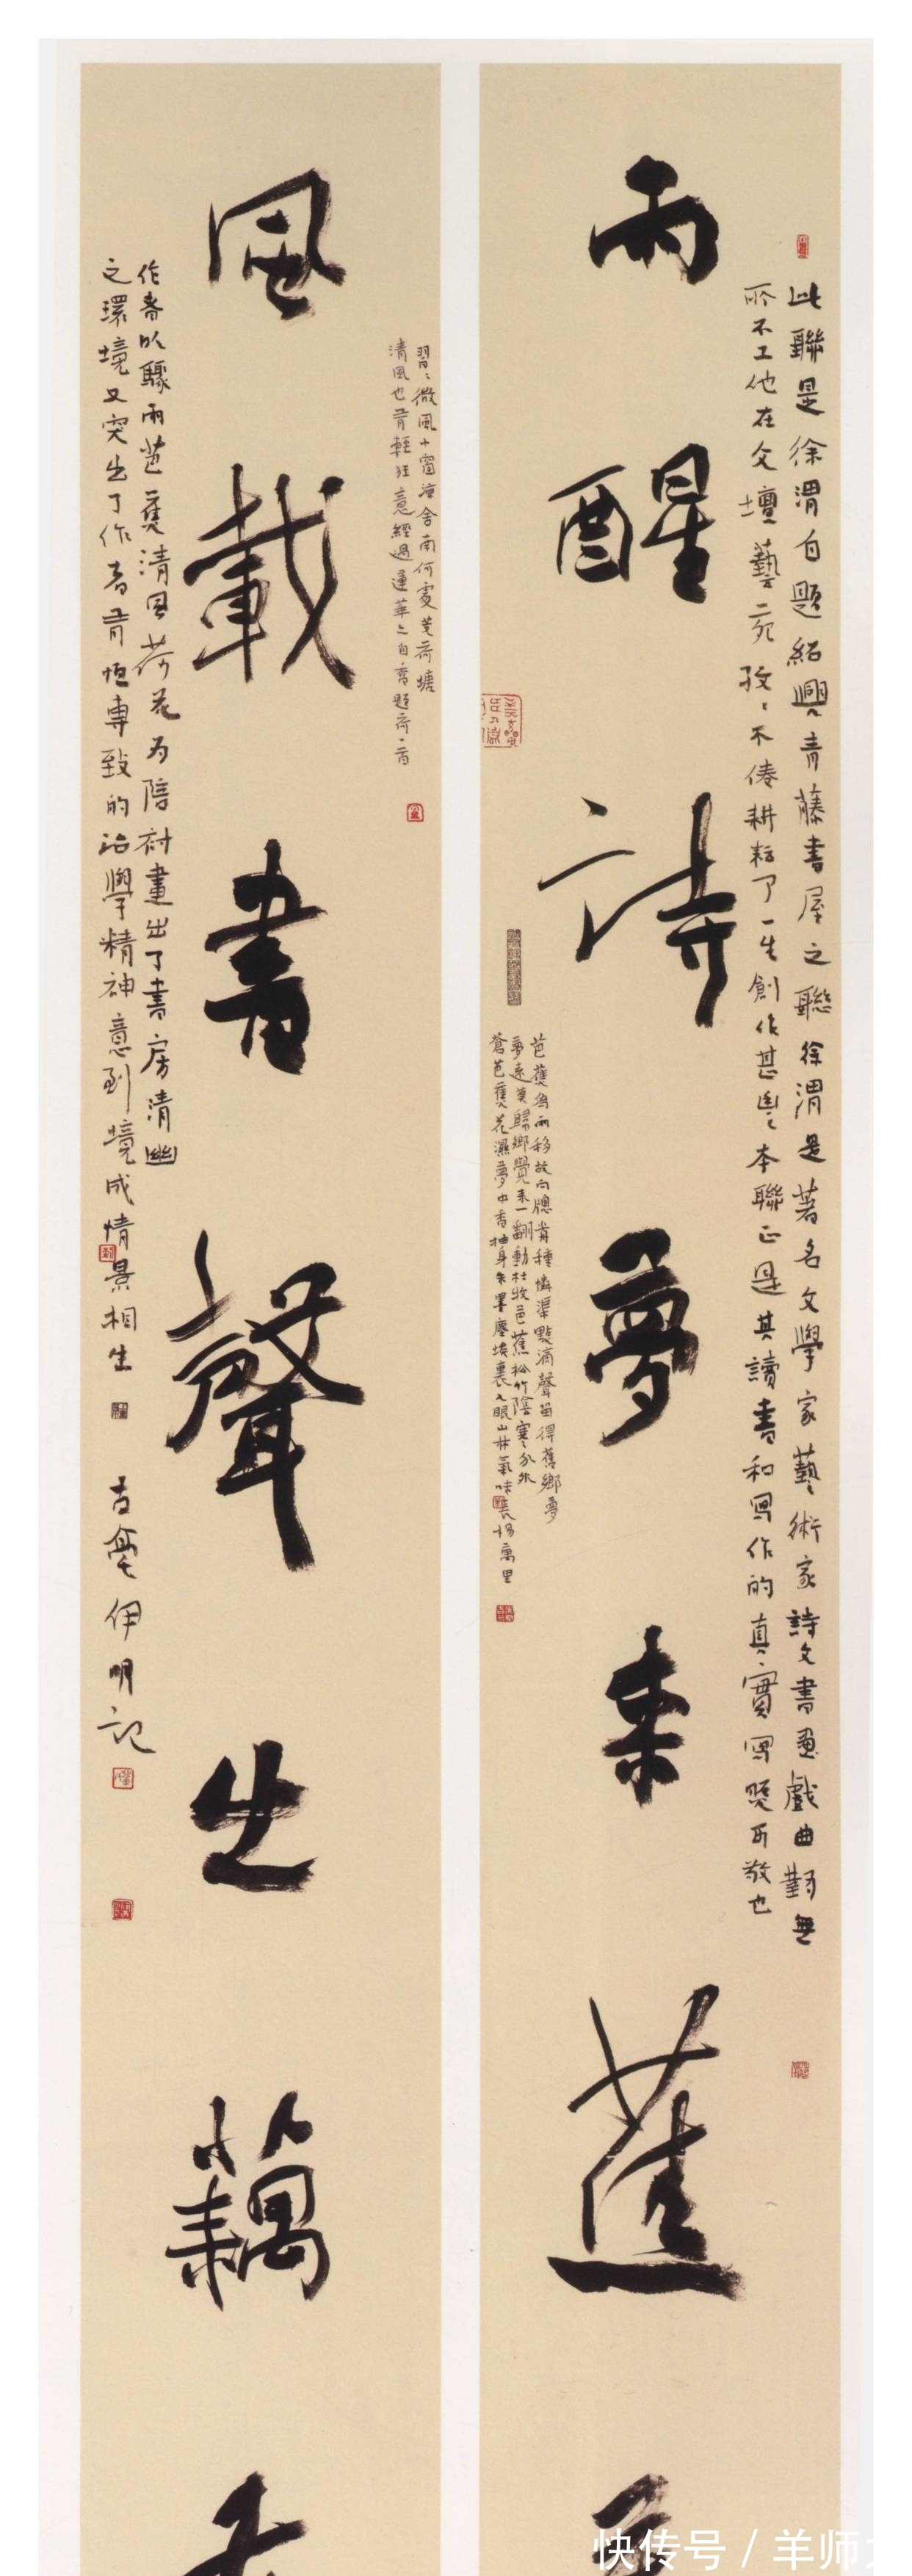 雨醒詩夢来蕉
風載書聲出藕
此聯是徐渭自題紹興青藤書屋之聯徐渭是著名文學家藝術家詩文書畫戲曲對無
所不工他在文壇藝苑孜〻不倦耕耘了一生創作甚豐本聯正是其讀書和寫作的真實寫照可敬也
芭蕉為雨移故向牕前種憐渠點滴聲留得舊鄉夢
夢遠莫歸鄉覺来一翻動杜牧芭蕉松竹陰寒分外
蒼芭蕉花濕夢中香抽身朱墨塵埃裏入眼山林氣味長楊萬里
習〻微風小窗涼舍南何處芰荷塘
清風也有輕狂意經過蓮華〻自香題荷一首
作者以驟雨芭蕉清風荷花為陪衬畫出了書房清幽
之環境又突出了作者有恒專致的治學精神意到境成情景相生
古亳伊明記
快传号 / 羊师